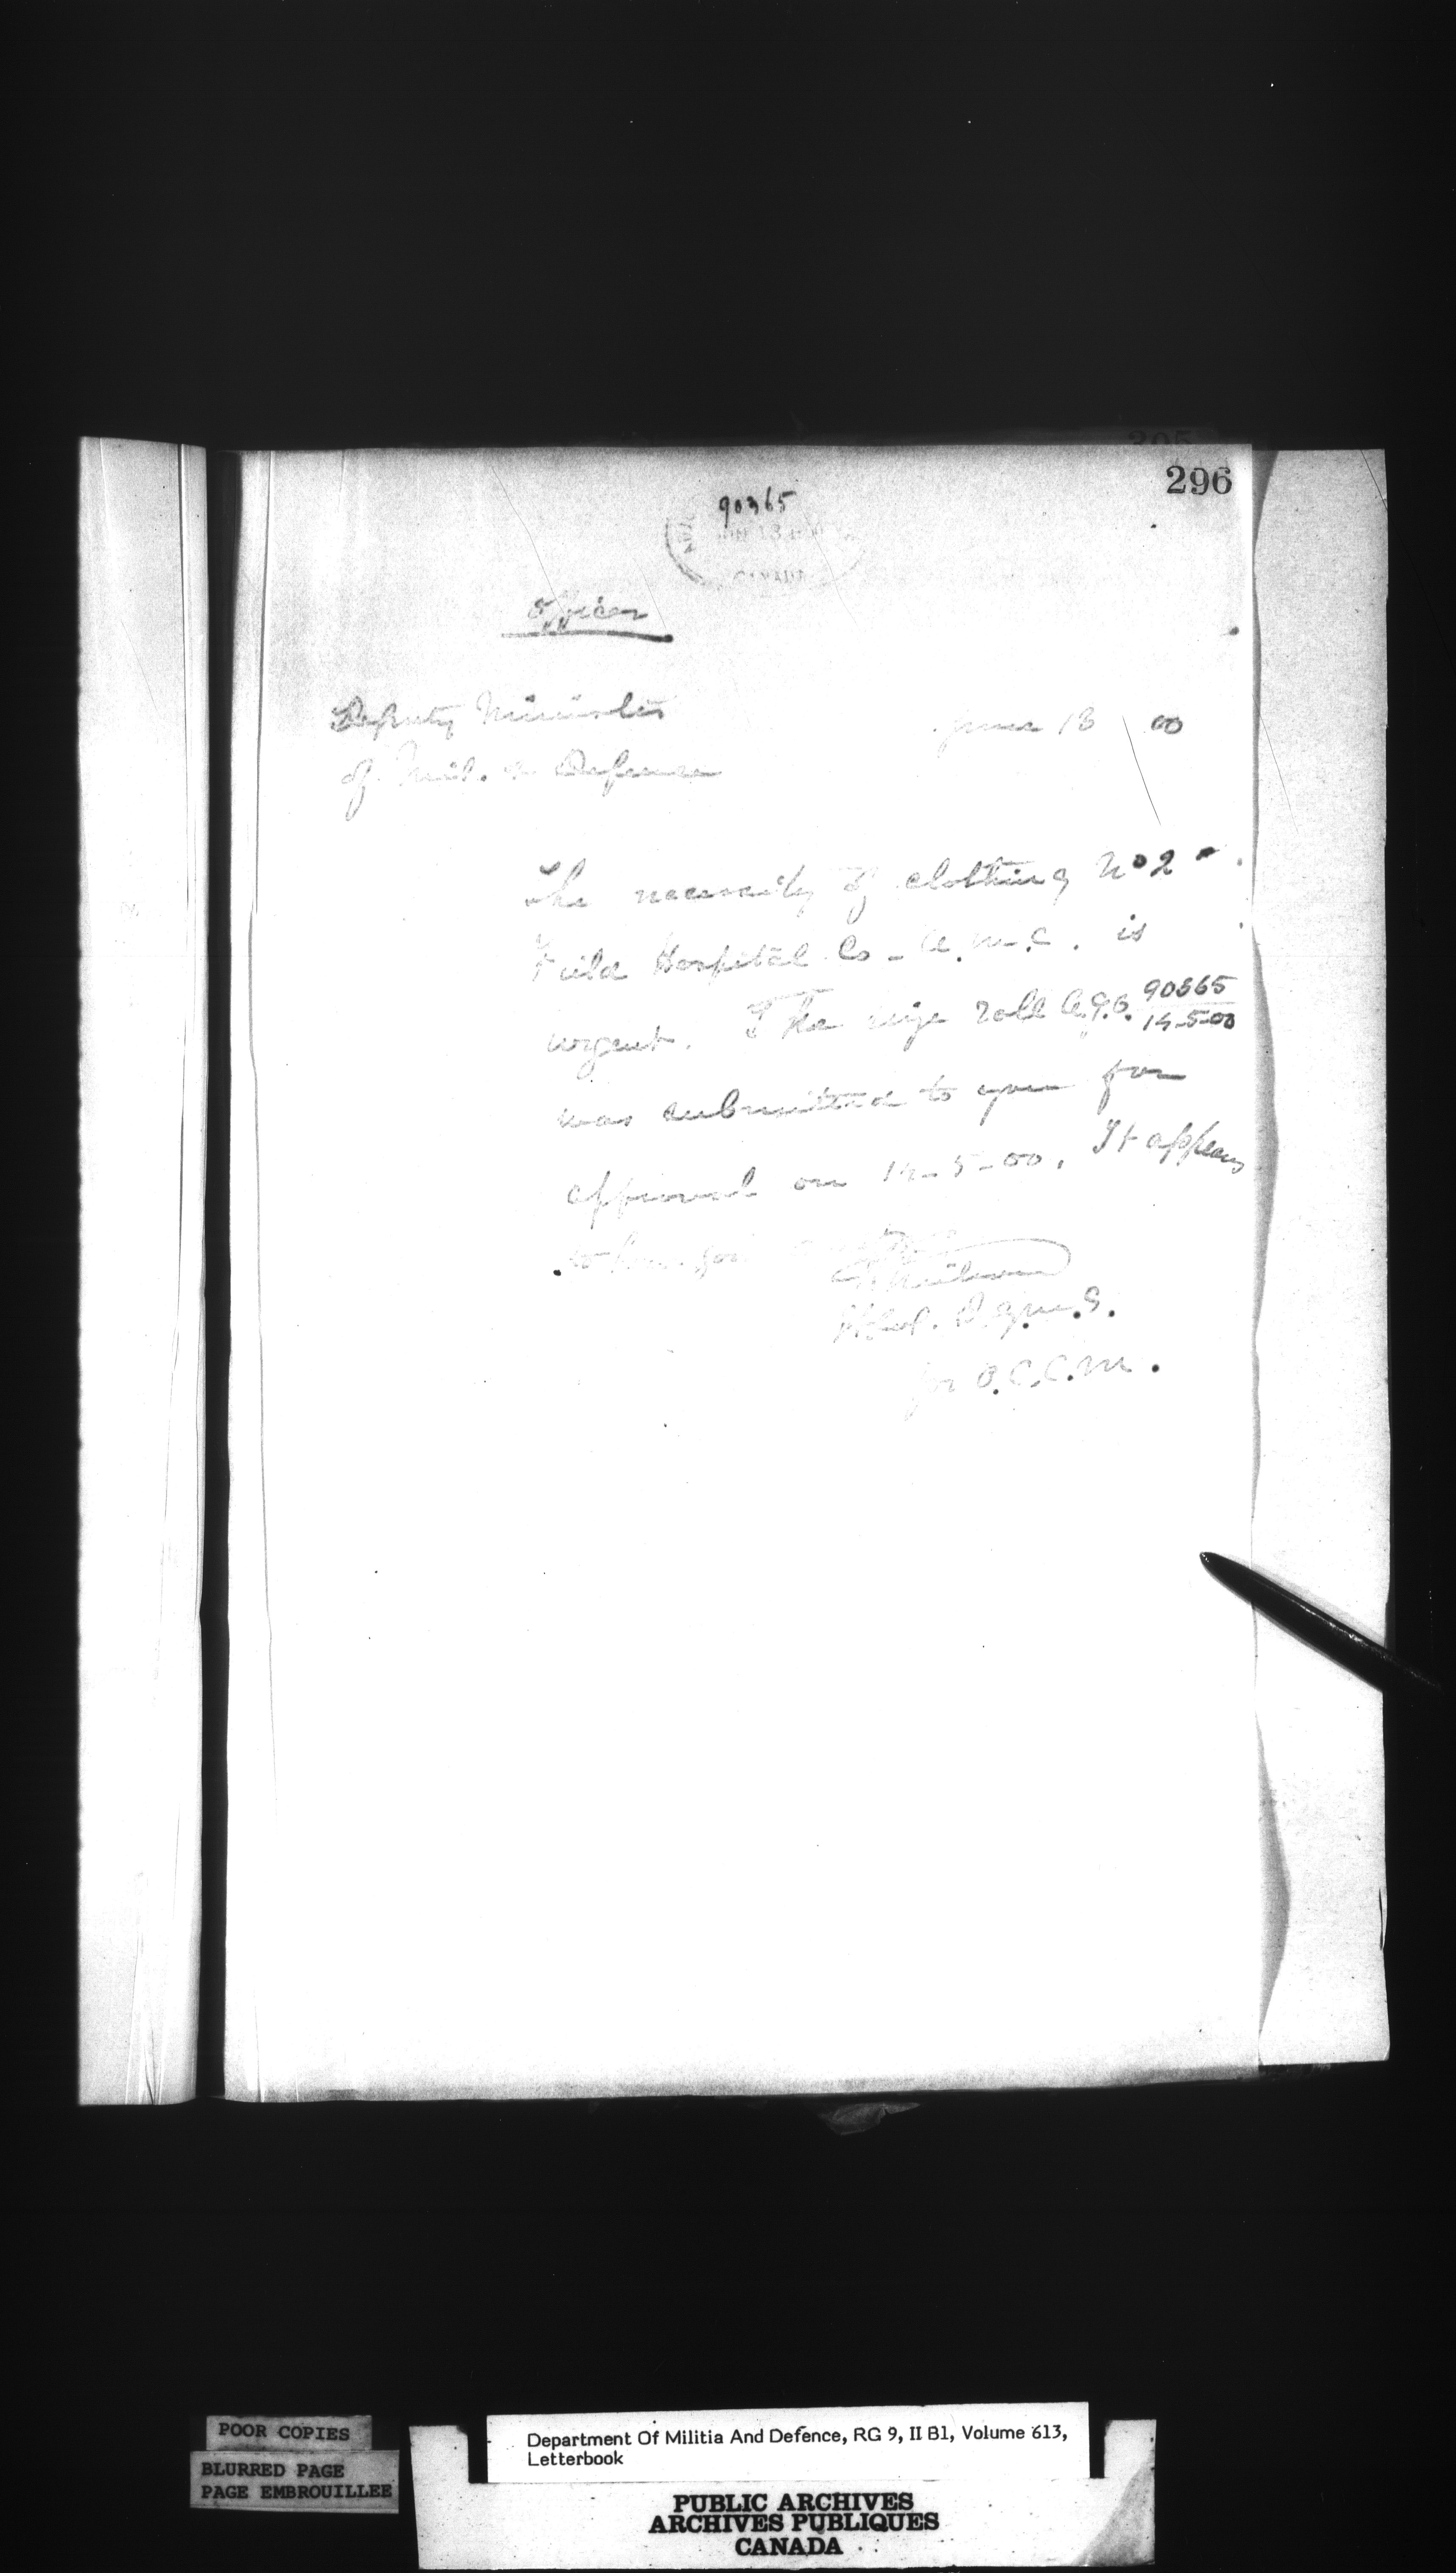 296
90365
JUN 13
CANADA
Officer
Deputy Minister
June 13 00
of Mil. & Defence
The necessity of clothing No 2
Field Hospital Co - A.M.C. is
urgent. The size roll A.G.O. 90365
14-5-00
was submitted to you for
approval on 14-5-00. It appears
to have
D.Q.M.G.
for O.C.C.M.
POOR COPIES
BLURRED PAGE
PAGE EMBROUILLEE
Department Of Militia And Defence, RG 9, II B1, Volume 613,
Letterbook
PUBLIC ARCHIVES
ARCHIVES PUBLIQUES
CANADA